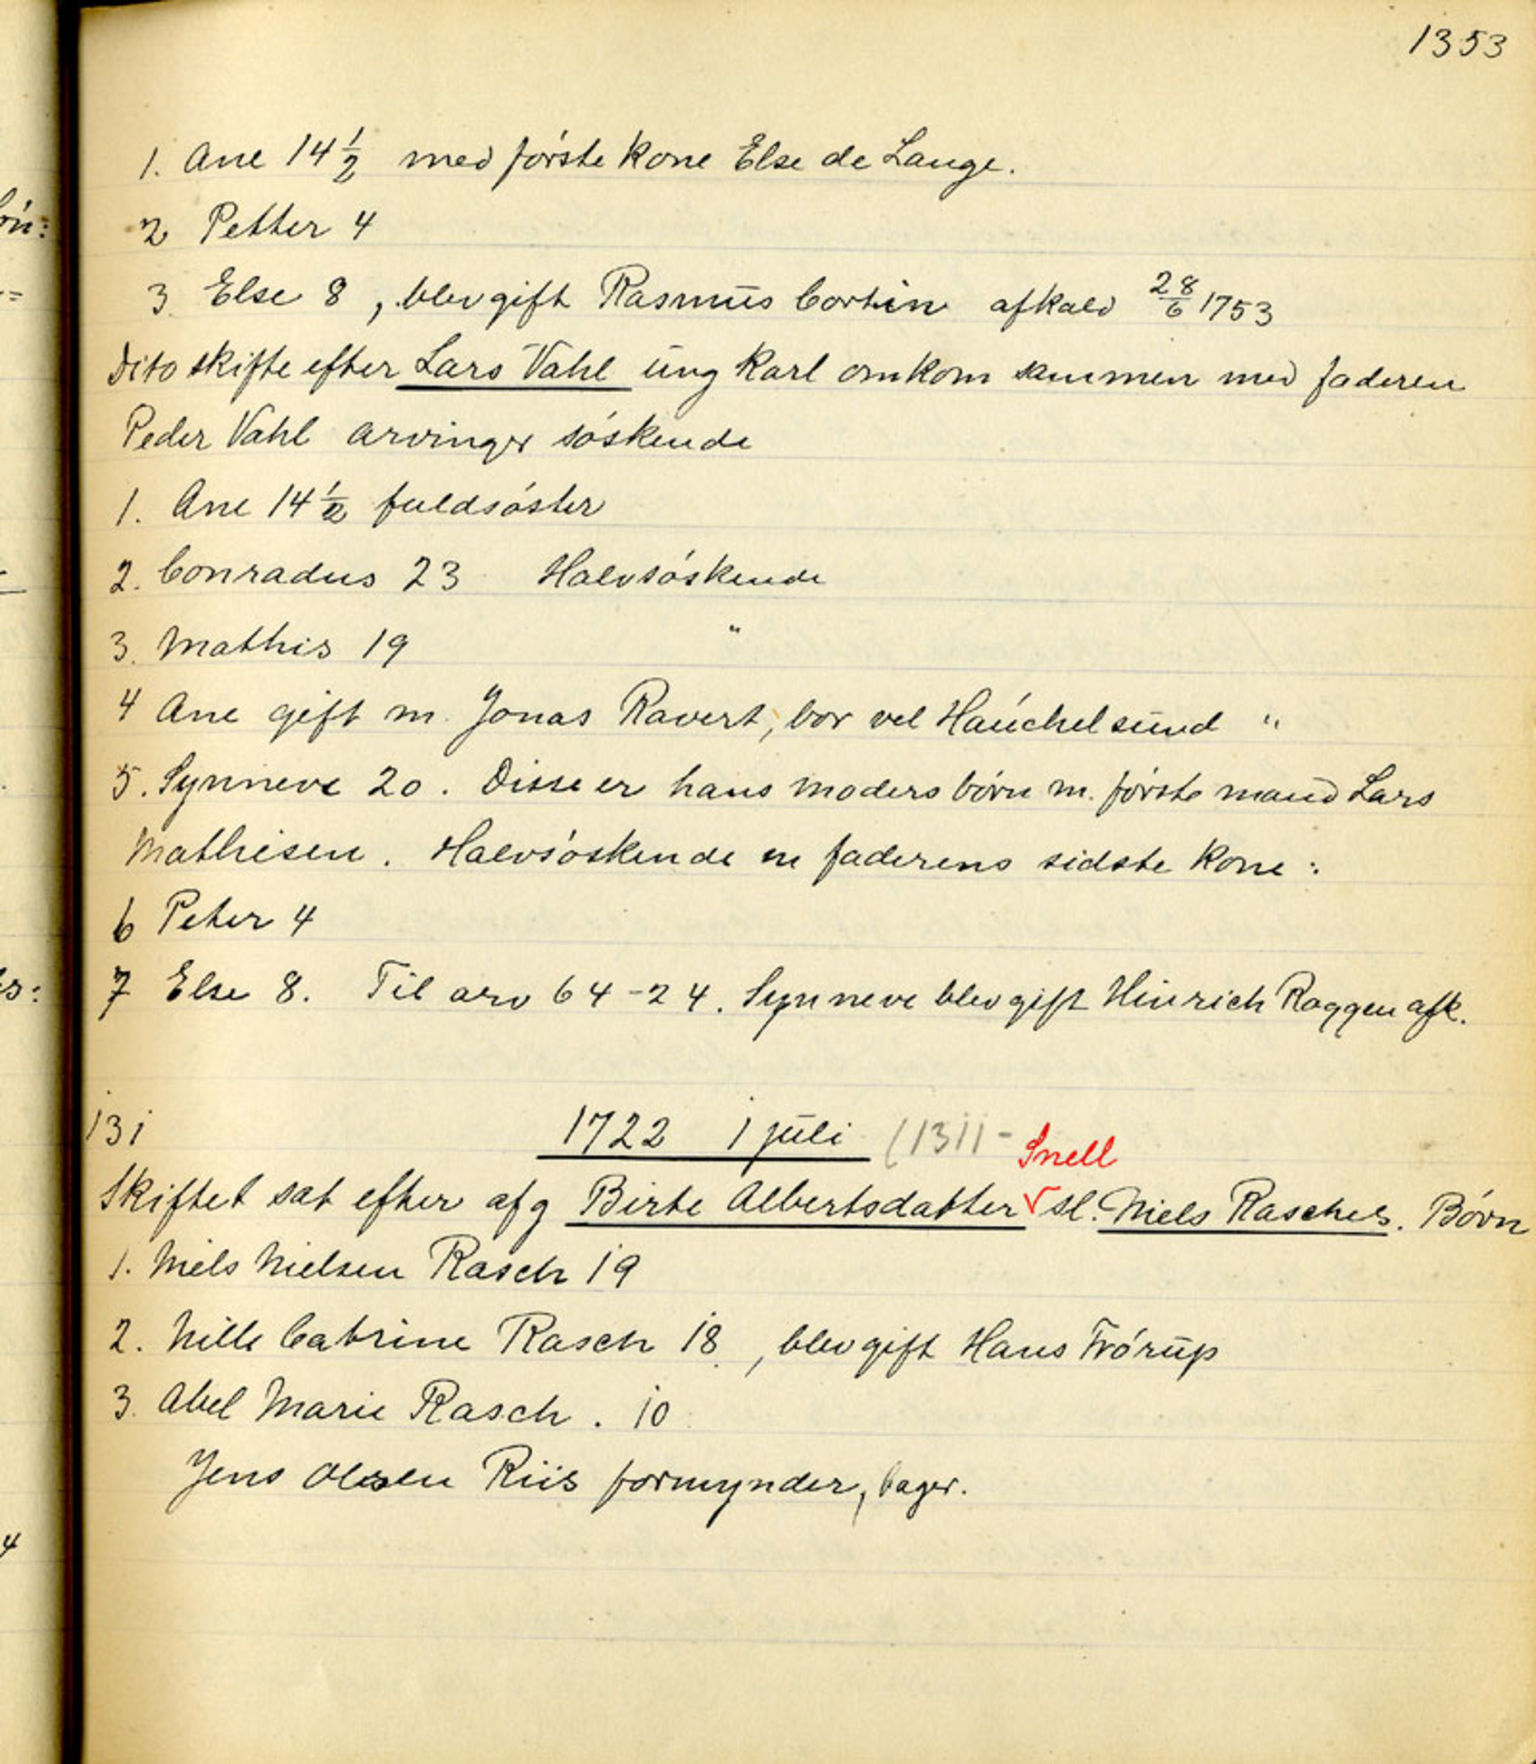 1353
1. Ane 14 1/2 med første kone Else de Lange.
2 Petter 4
3 Else 8, blev gift Rasmus Cortin afkald 28/6 1753
Dito skifte efter Lars Vahl ung karl omkom sammen med faderen
Peder Vahl arvinger søskende
1. Ane 14 1/2 fuldsøster
2. Conradus 23 Halvsøskende
3. Mathis 19 "
4 Ane gift m. Jonas Ravert, bor vel Hauchelsund "
5. Synneve 20. Disse er hans moders børn m. første mand Lars
Mathisen. Halvsøskende m faderens sidste kone:
6 Peter 4
7 Else 8. Til arv 64-24. Synneve blev gift Hinrich Roggen afk.
131
1722 1 juli (1311-
Snell
Skiftet sat efter afg Birte Albertsdatter √ sl. Niels Rasches. Børn
1. Niels Nielsen Rasch 19
2. Nille Catrine Rasch 18, blev gift Hans Trørup
3. Abel Marie Rasch. 10
Jens Olesen Riis formynder, bager.